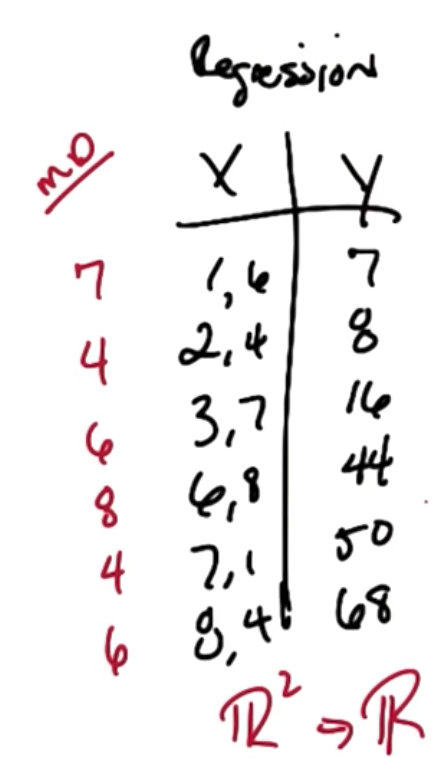 Regression
mD X Y
7 1,6 7
4 2,4 8
6 3,7 16
8 6,8 44
4 7,1 50
6 8,4 68
ℝ² → ℝ